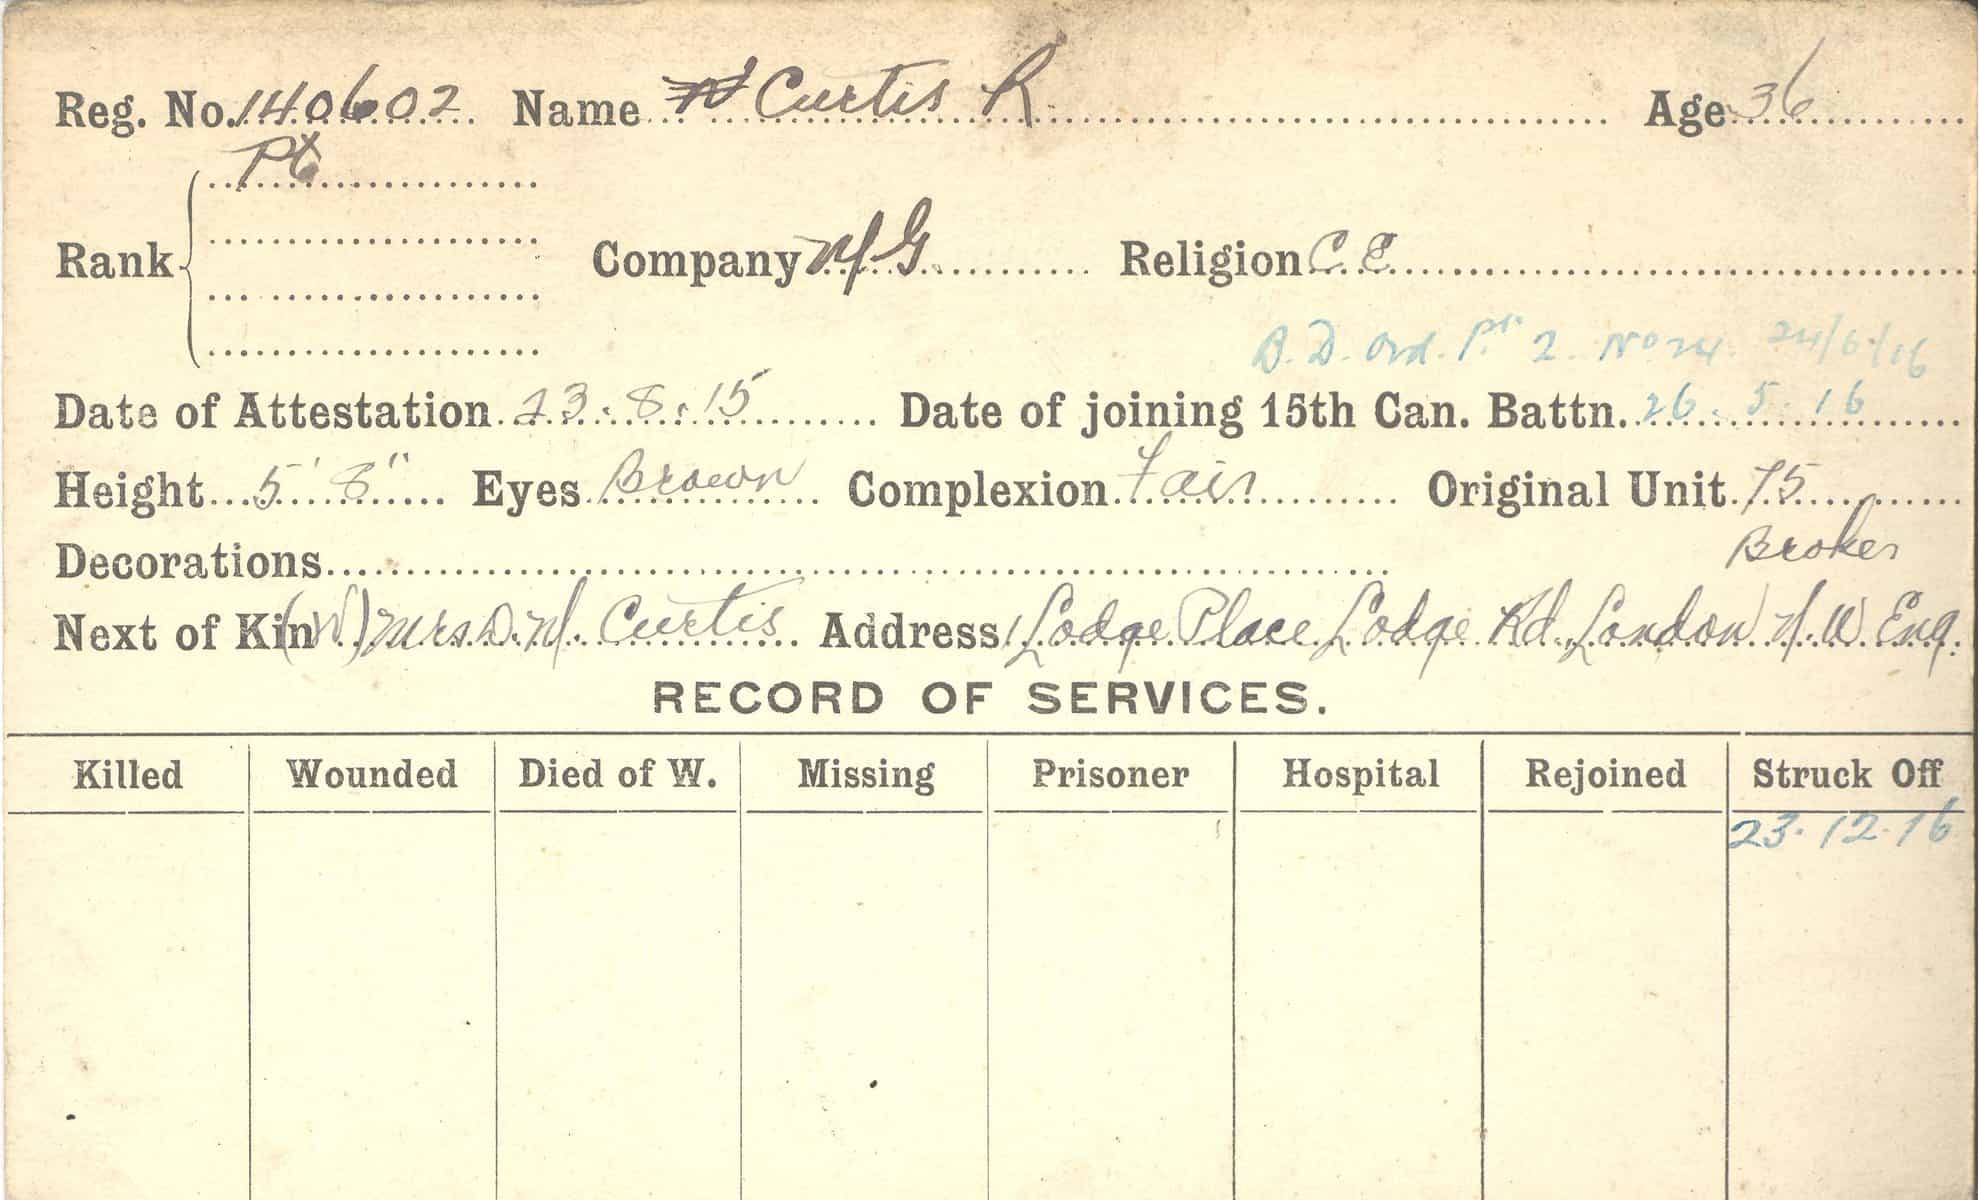 Reg. No. 140602 Name Curtis R Age 36
Pt
Rank Company M G Religion C. E
B. D. Ord. Pt 2. No 24. 24/6/16
Date of Attestation 23. 8. 15 Date of joining 15th Can. Battn. 26. 5. 16
Height 5' 8" Eyes Brown Complexion Fair Original Unit 75
Decorations Broker
Next of Kin (W) Mrs D. M. Curtis Address 1 Lodge Place Lodge Rd. London N. W. Eng.
RECORD OF SERVICES.
Killed Wounded Died of W. Missing Prisoner Hospital Rejoined Struck Off
23. 12. 16